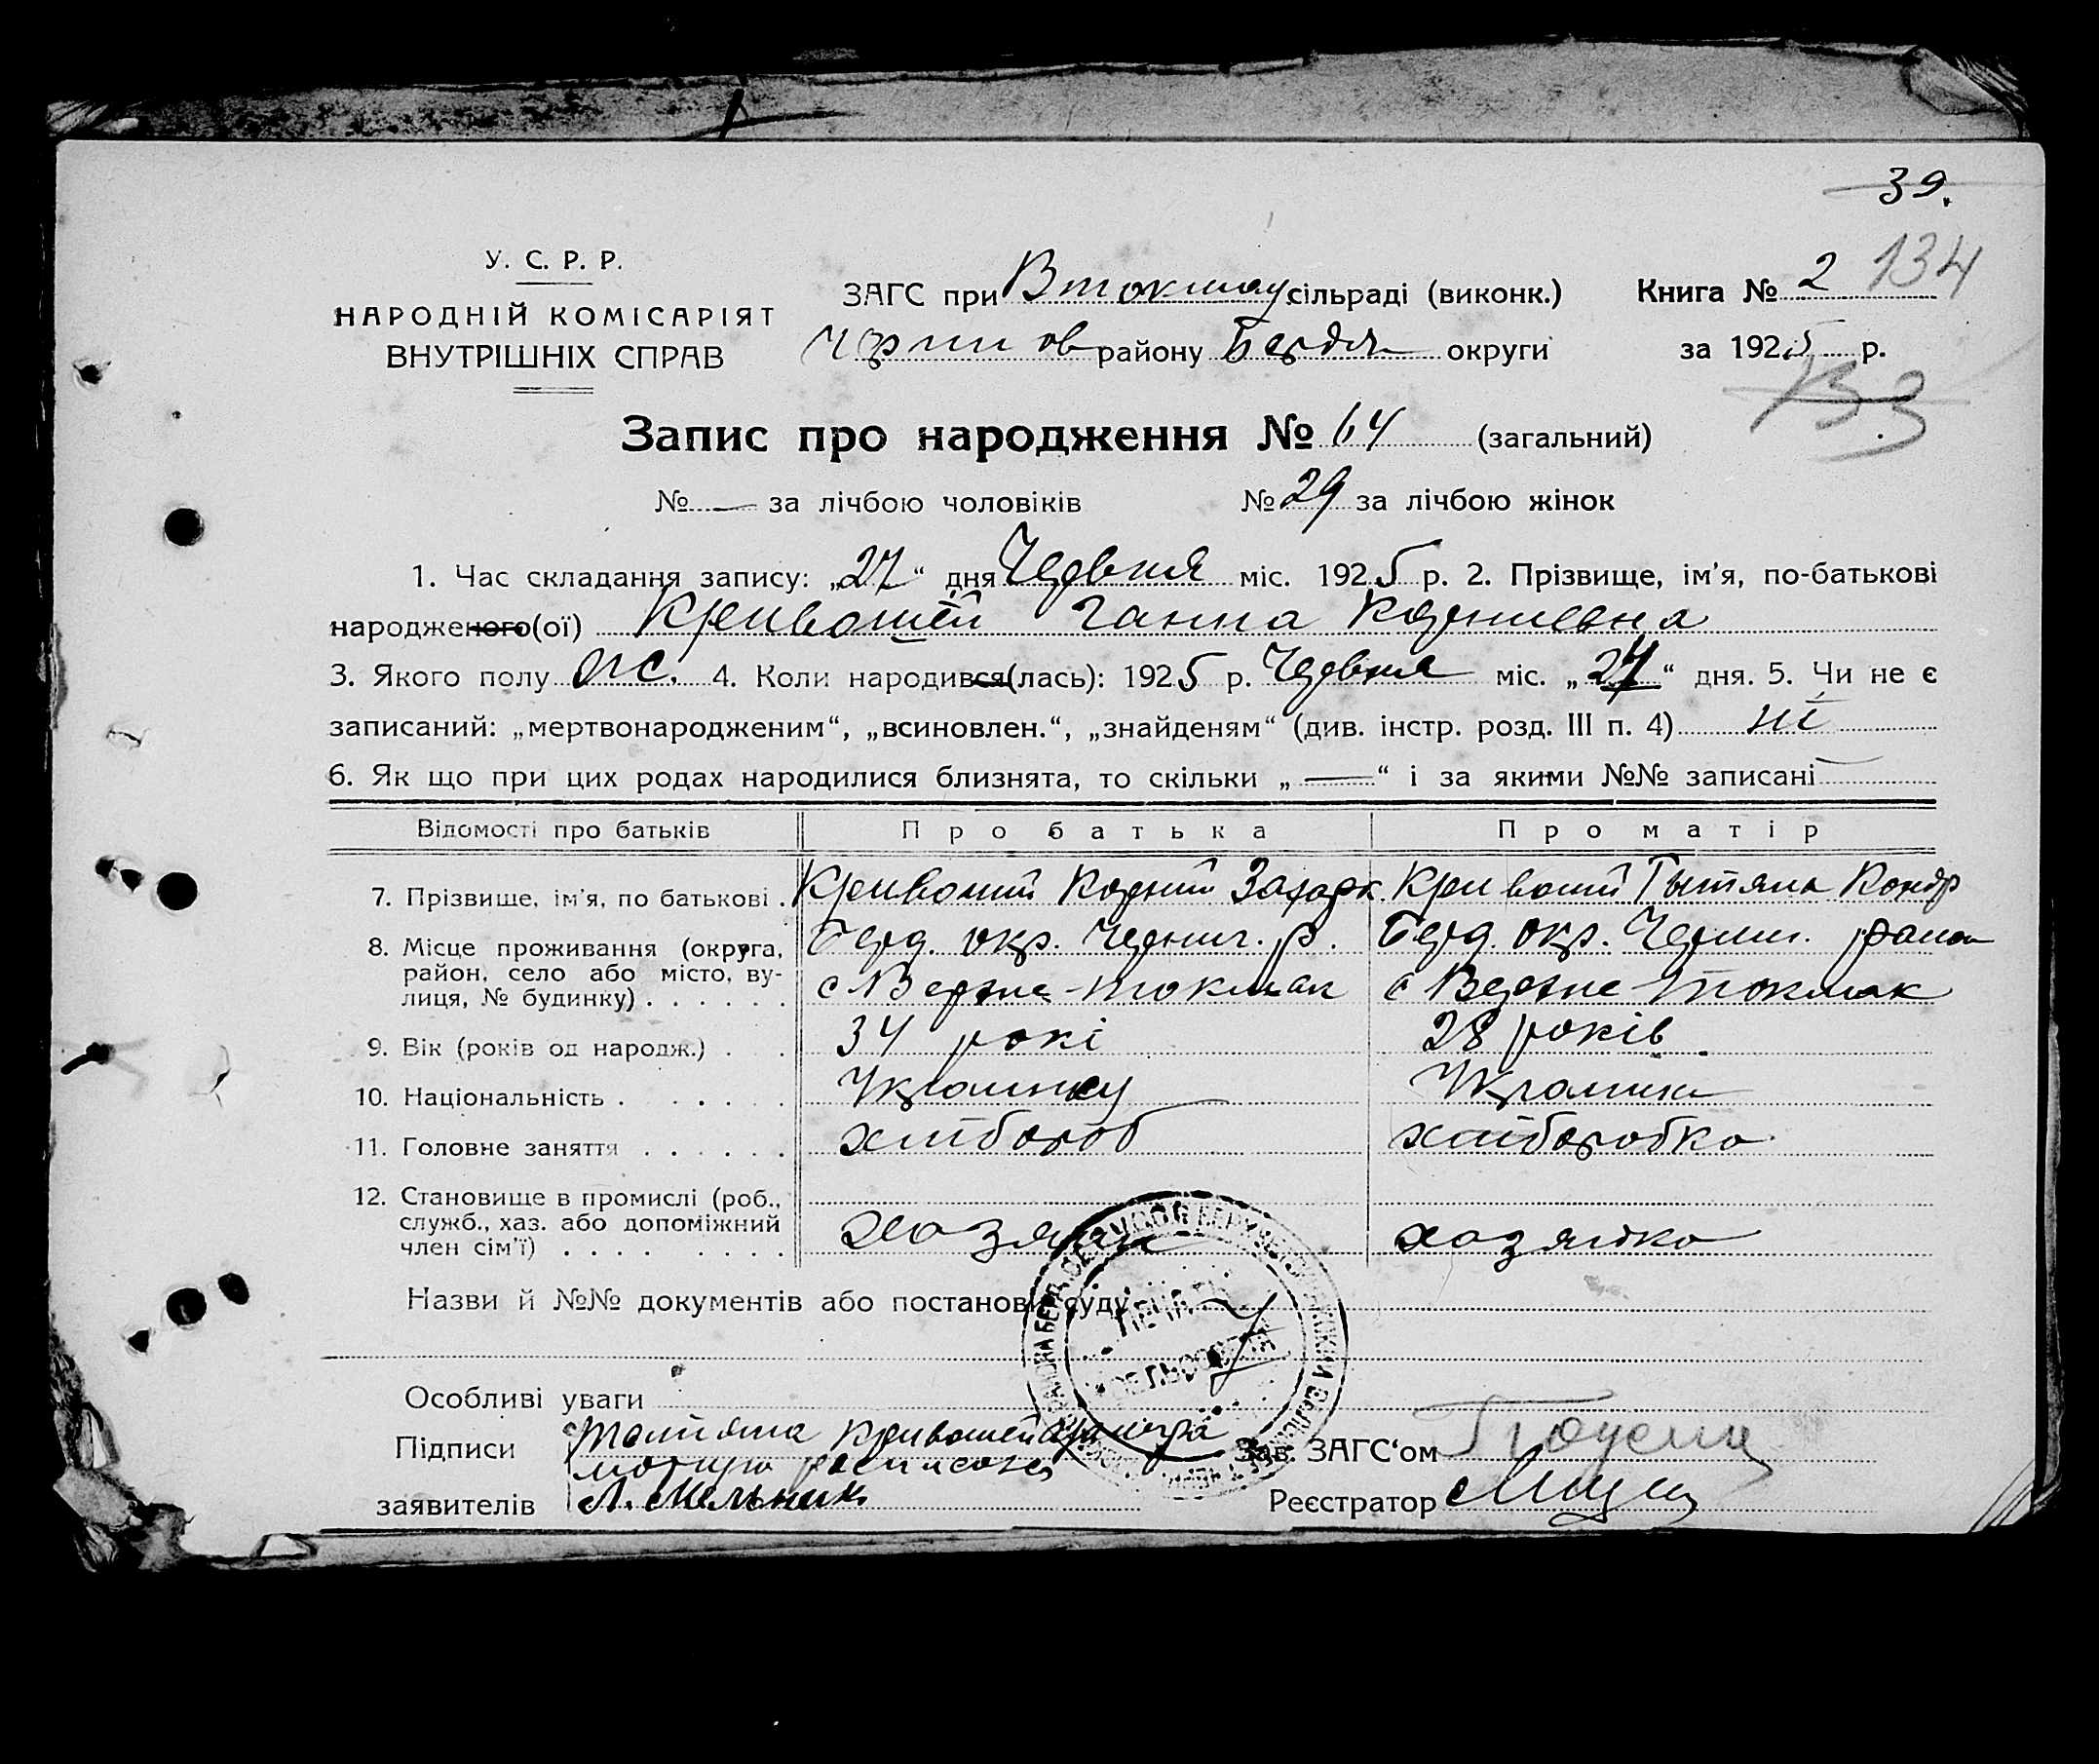 39.
У. С. Р. Р.
НАРОДНІЙ КОМІСАРІЯТ
ВНУТРІШНІХ СПРАВ
ЗАГС при Втокмау сільраді (виконк.)
район у Бердян округи
Книга № 2 134
за 1925 р.
133
Запис про народження № 64 (загальний)
№ — за лічбою чоловіків № 29 за лічбою жінок
1. Час складання запису: „27“ дня Червня міс. 1925 р. 2. Прізвище, ім'я, по-батькові
народженого(ої) Кривоший Ганна Корниевна
3. Якого полу ж. 4. Коли народився(лась): 1925 р. Червня міс. „24“ дня. 5. Чи не є
записаний: „мертвонародженим“, „всиновлен.“, „знайденям“ (див. інстр. розд. III п. 4) ні
6. Як що при цих родах народилися близнята, то скільки „ — “ і за якими №№ записані —
Відомості про батьків Про батька Про матір
7. Прізвише, ім'я, по батькові . Кривоший Корний Захарк. Кривоший Тытяна Кондр
8. Місце проживання (округа, Берд. окр. Черниг. р. Берд. окр. Черниг. район
район, село або місто, ву- с Верхне-токмак с Верхне-токмак
лиця, № будинку) . . . . . .
9. Вік (років од народж.) . . 34 рокі 28 років
10. Національність . . . . . .
11. Головне заняття . . . . . . хліборобка
12. Становище в промислі (роб.,
служб., хаз. або допоміжний хазяін хазяйка
член сім'ї) . . . . . . . . .
Назви й №№ документів або постанови суду
Особливі уваги
Підписи Кривошей
заявителів Л. Мельник
Зав. ЗАГС'ом
Реєстратор